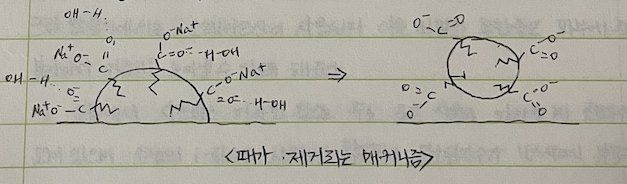 OH-H···
O⁻Na⁺
Na⁺O⁻-C=O
C=O···H-OH
OH-H···O
Na⁺O-C
C-O⁻Na⁺
=O···H-OH
⇒
O⁻ C=O
C-O⁻
=O
O=C
O⁻
C-O⁻
O
<때가 제거되는 매커니즘>